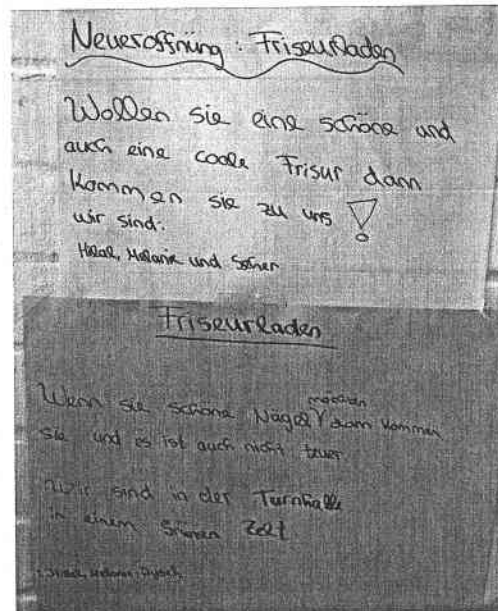 Neueröffnung: Friseurladen
Wollen sie eine schöne und
auch eine coole Frisur dann
kommen sie zu uns!
wir sind:
Hilal, Melanie und
Friseurladen
Wenn sie schöne Nägel möchten dann kommen
sie und es ist auch nicht teuer
Wir sind in der Turnhalle
in einem Zelt
Melanie,